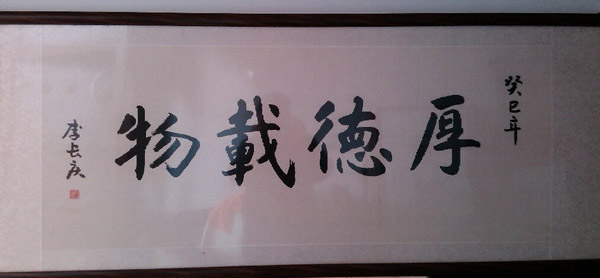 癸巳年
厚德載物
李长庚